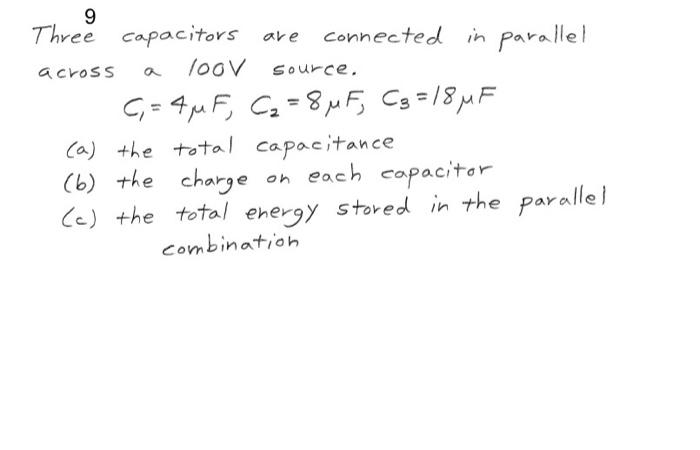 9
Three capacitors are connected in parallel
across a 100V source.
C₁ = 4μF, C₂ = 8μF, C₃ = 18μF
(a) the total capacitance
(b) the charge on each capacitor
(c) the total energy stored in the parallel
combination